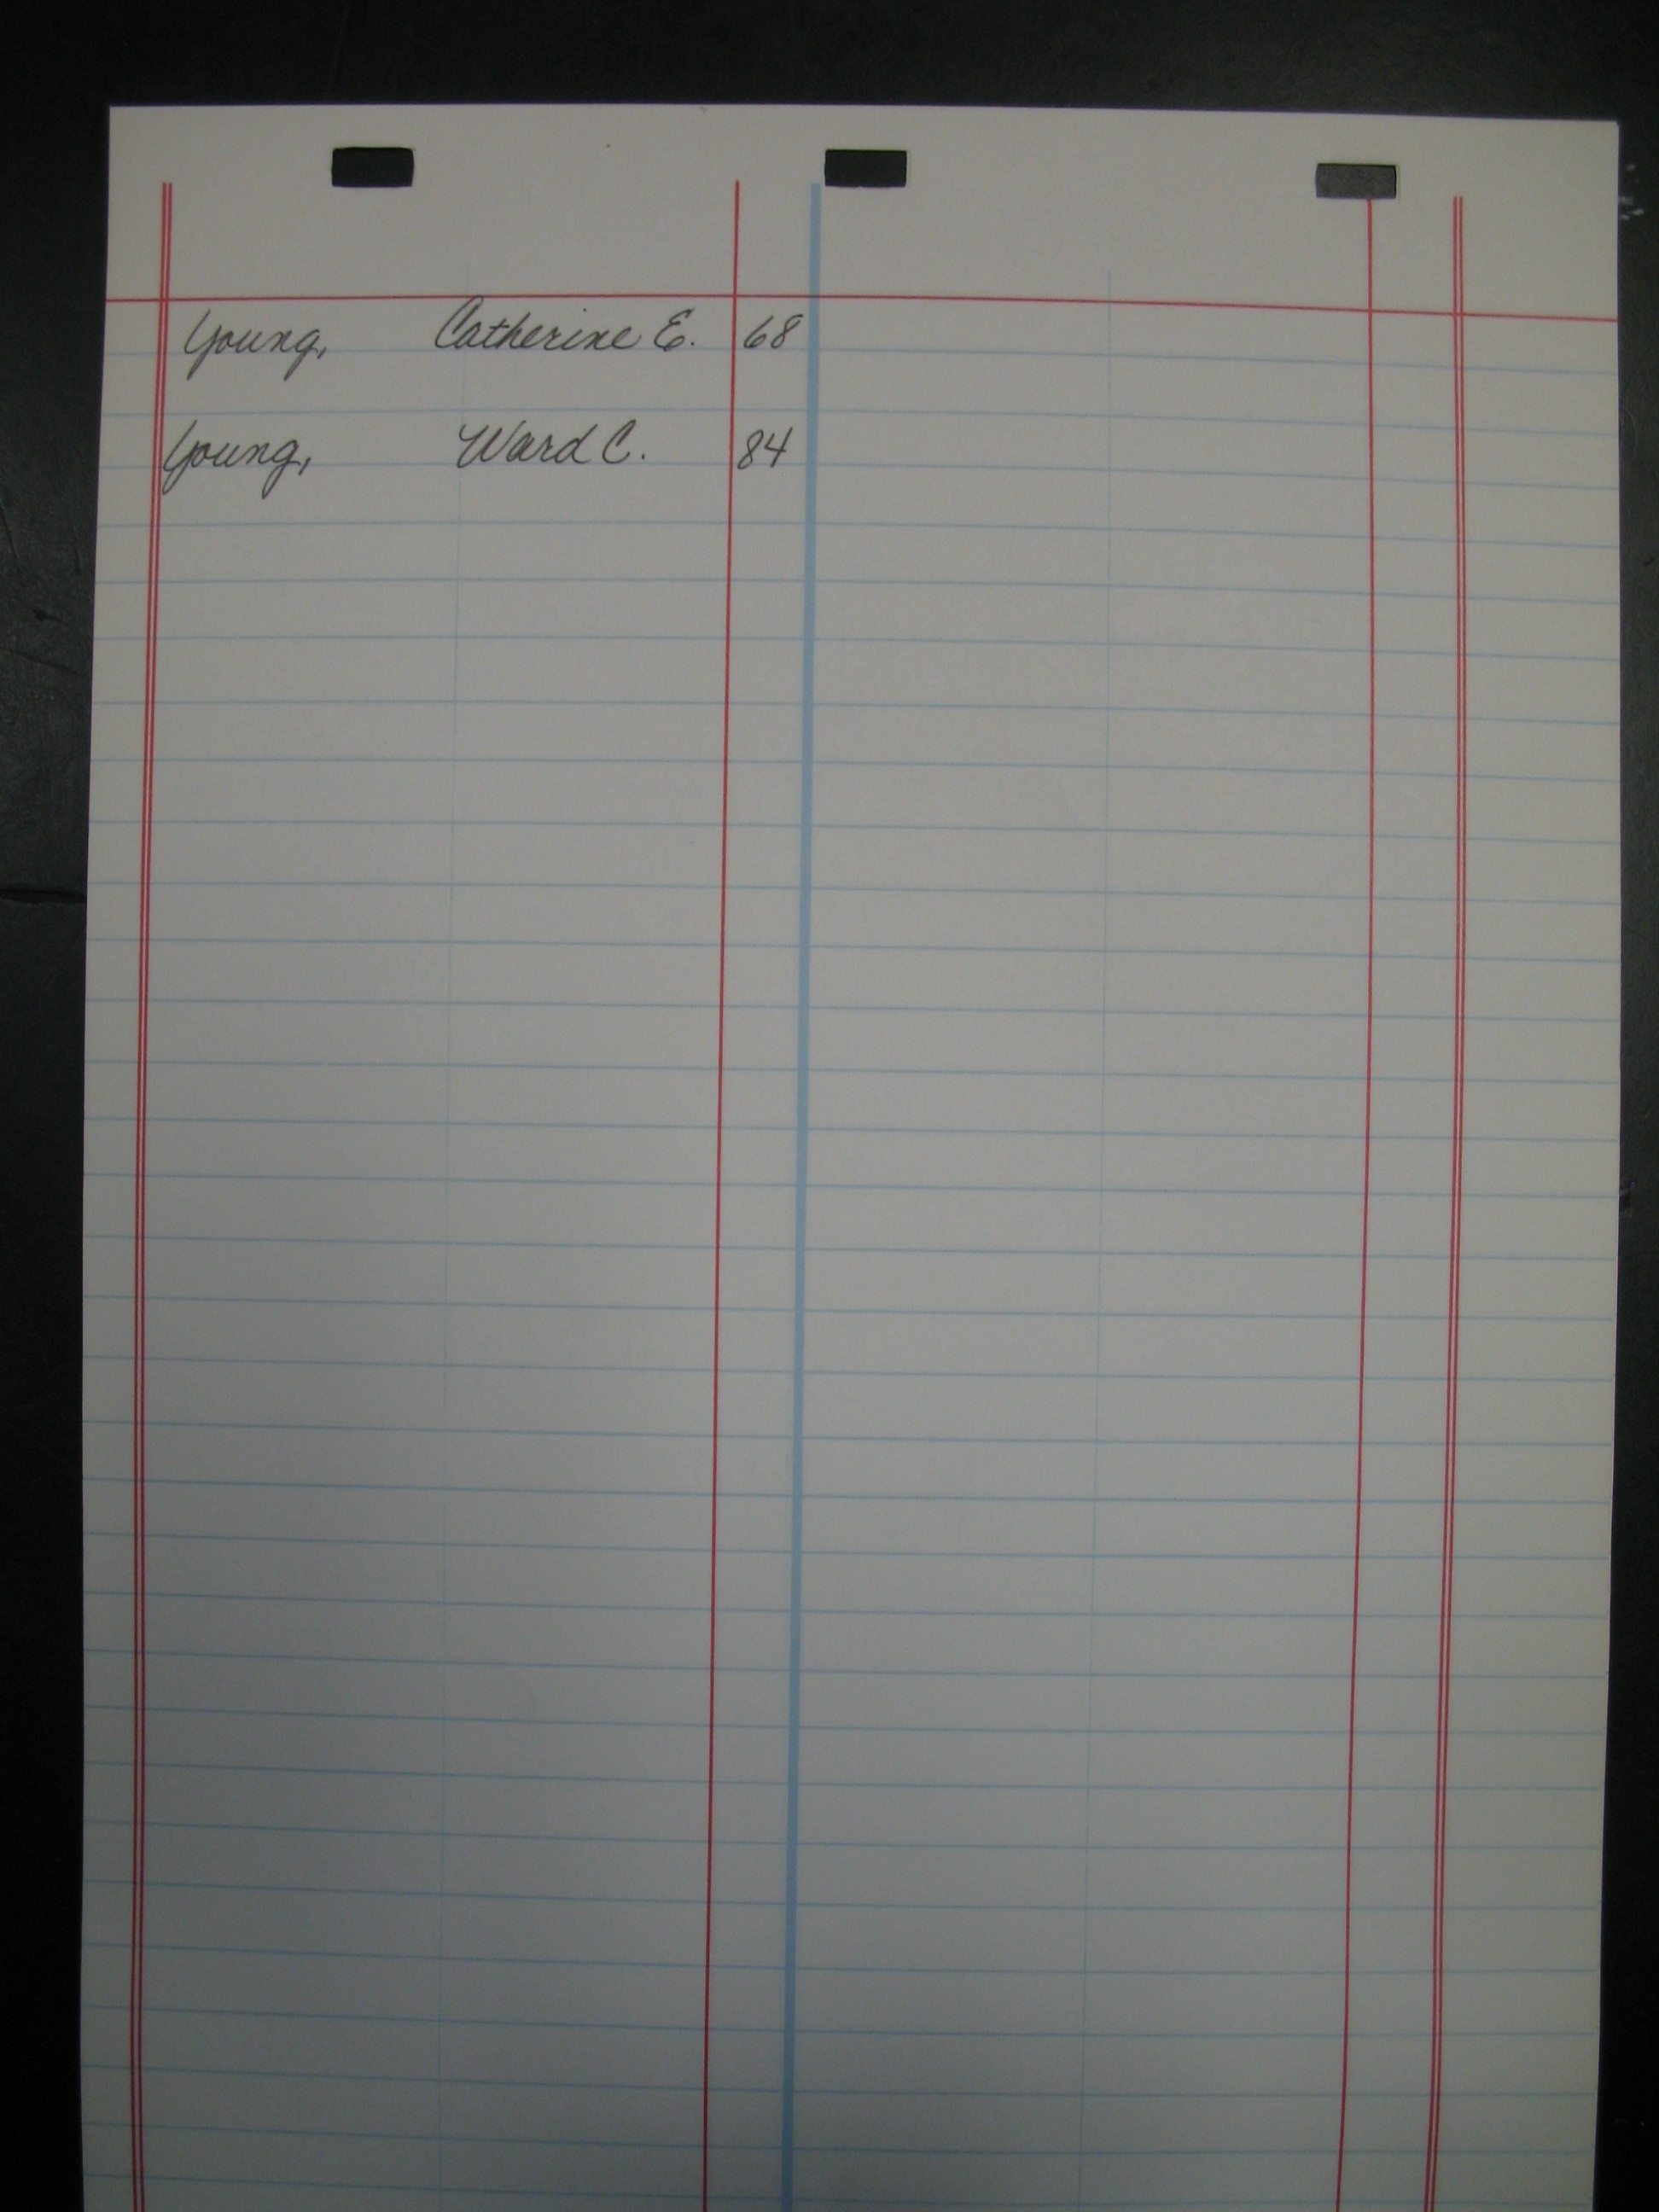 Young, Catherine E. 68
Young, Ward C. 84